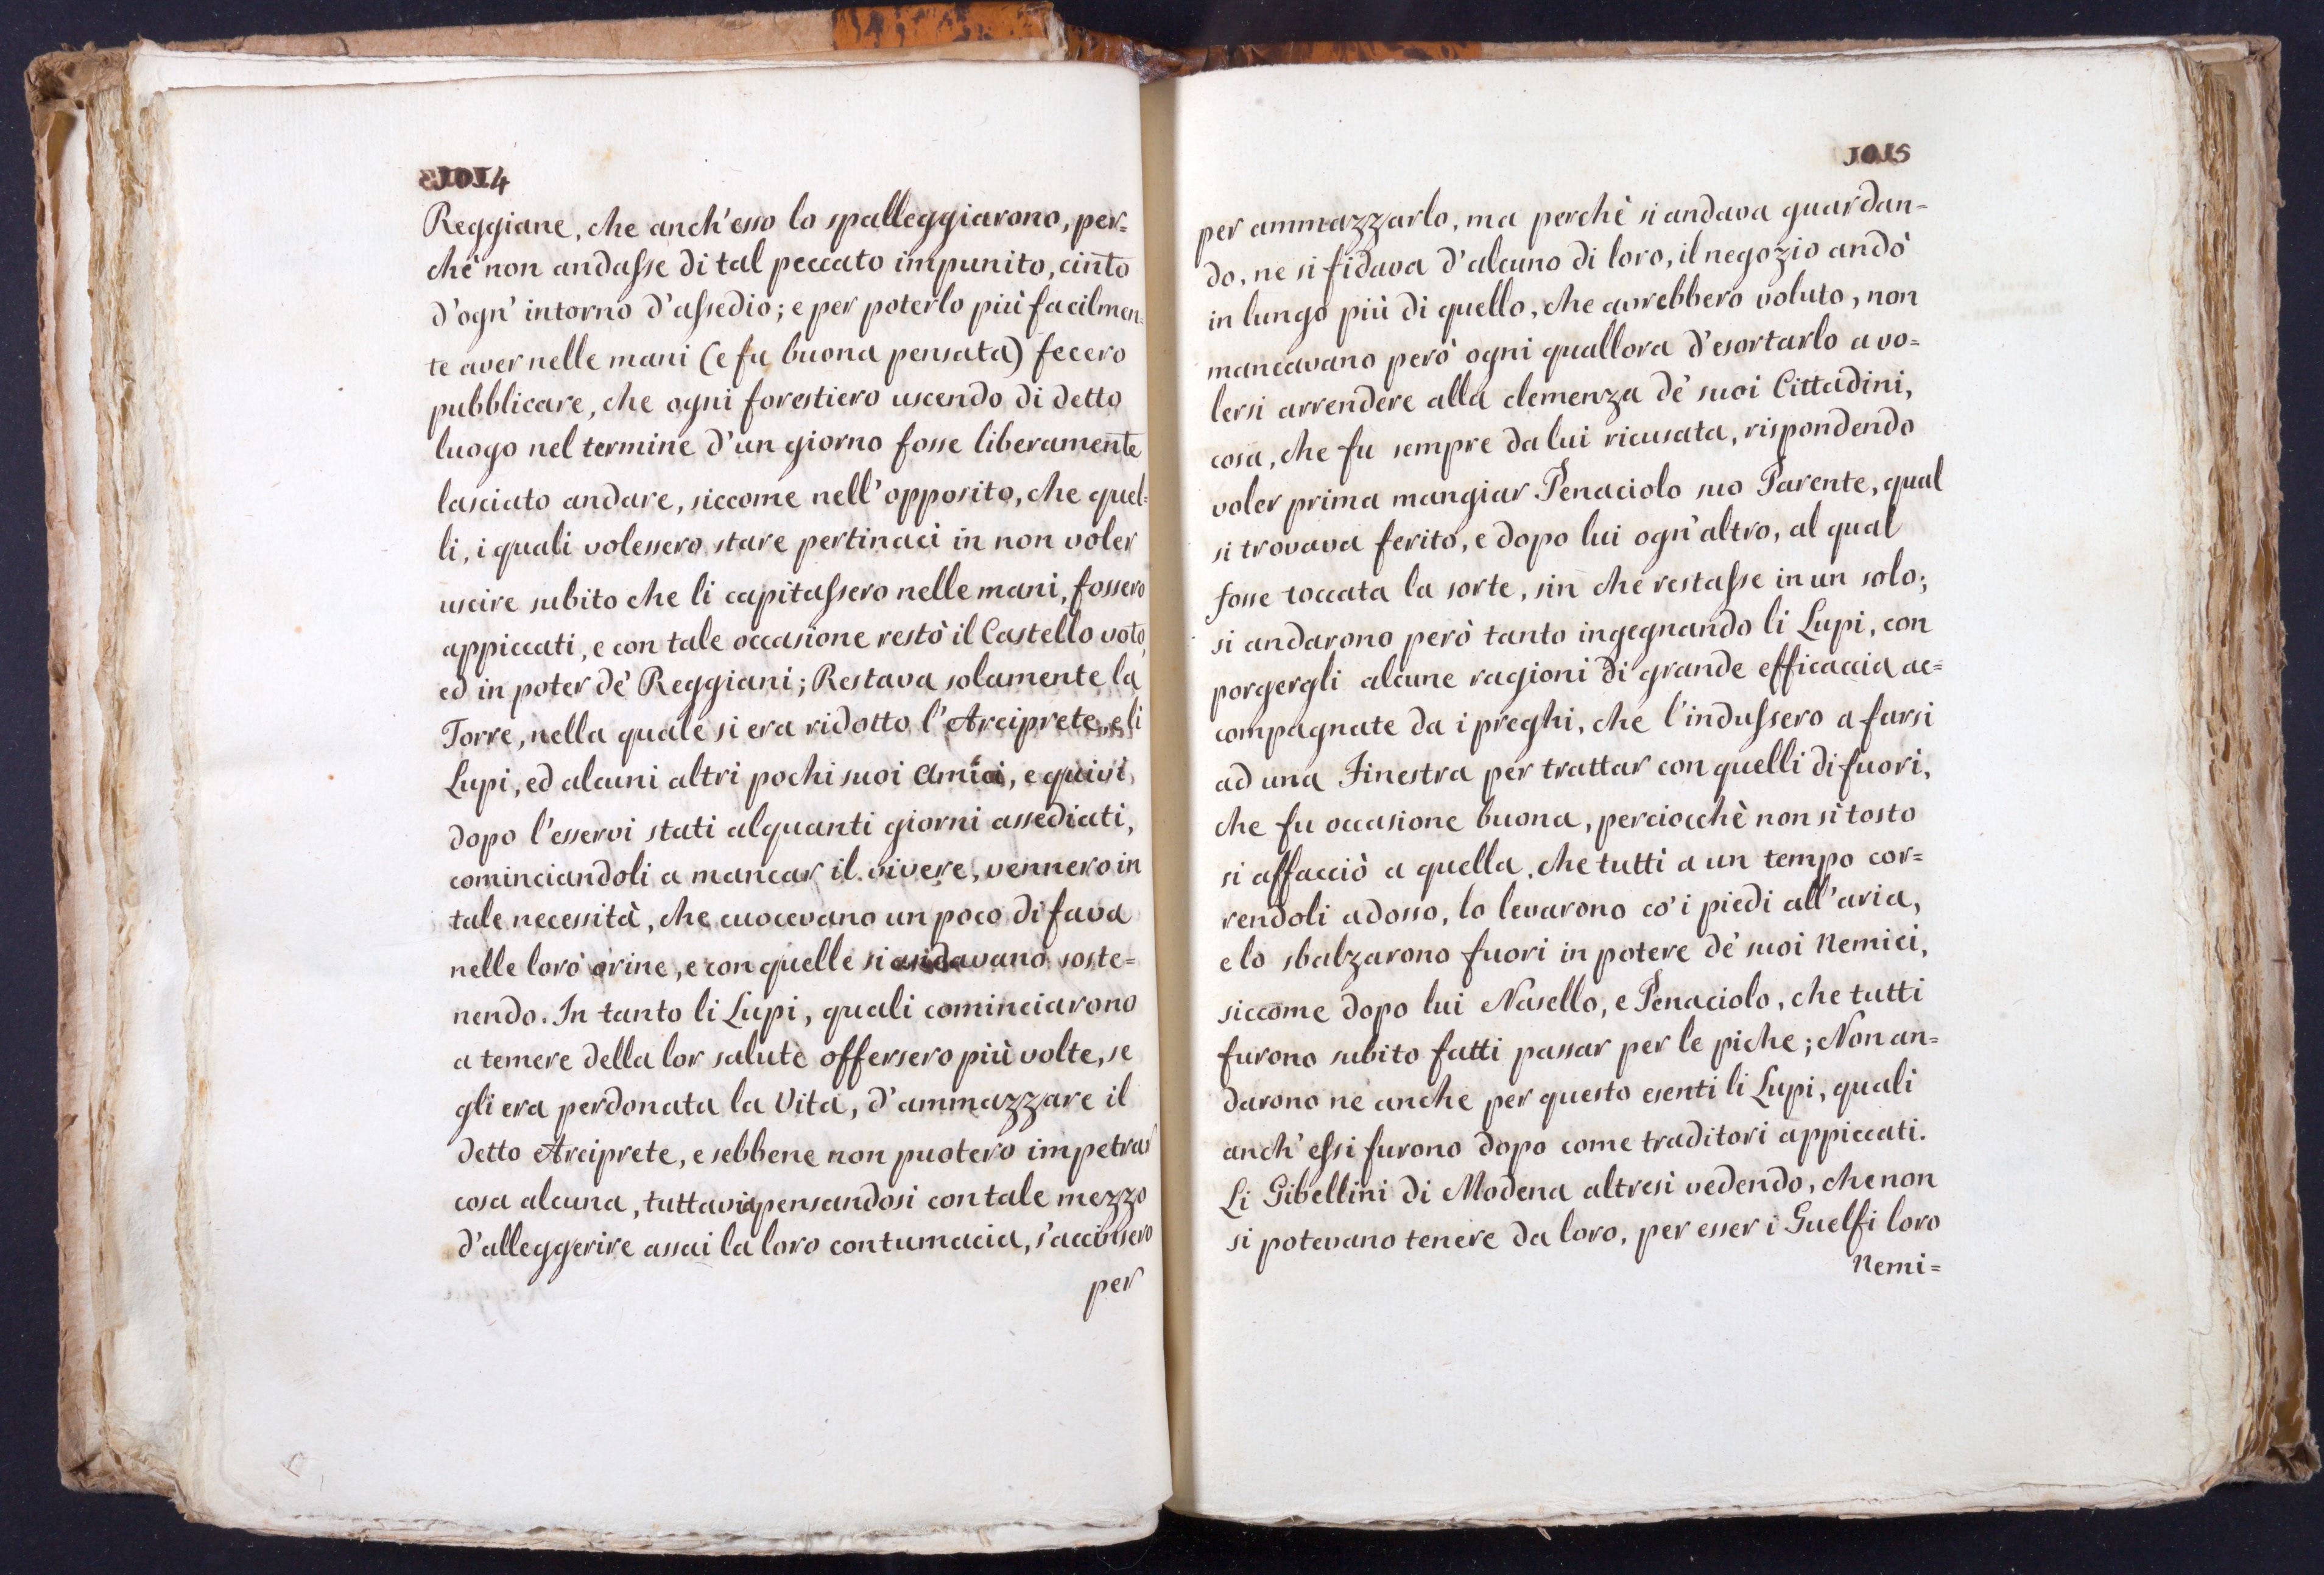 1014
Reggiane, che anch'esso lo spalleggiarono, per=
chè non andasse di tal peccato impunito, cinto
d'ogn'intorno d'assedio; e per poterlo più facilmen=
te aver nelle mani (e fu buona pensata) fecero
pubblicare, che ogni forestiero uscendo di detto
luogo nel termine d'un giorno fosse liberamente
lasciato andare, siccome nell'opposito, che quel=
li, i quali volessero stare pertinaci in non voler
uscire subito che li capitassero nelle mani, fossero
appiccati, e con tale occasione restò il Castello voto,
ed in poter de' Reggiani; Restava solamente la
Torre, nella quale si era ridotto l'Arciprete, e li
Lupi, ed alcuni altri pochi suoi Amici, e quivi
dopo l'esservi stati alquanti giorni assediati,
cominciandoli a mancar il vivere, vennero in
tale necessità, che cuocevano un poco di fava
nelle loro orine, e con quelle si andavano soste=
nendo. In tanto li Lupi, quali cominciarono
a temere della lor salute offersero più volte, se
gli era perdonata la Vita, d'ammazzare il
detto Arciprete, e sebbene non puotero impetrar
cosa alcuna, tuttavia pensandosi con tale mezzo
d'alleggerire assai la loro contumacia, s'accinsero
per
1015
per ammazzarlo, ma perchè si andava guardan=
do, ne si fidava d'alcuno di loro, il negozio andò
in lungo più di quello, che avrebbero voluto, non
mancavano però ogni quallora d'esortarlo a vo=
lersi arrendere alla clemenza de' suoi Cittadini,
cosa, che fu sempre da lui ricusata, rispondendo
voler prima mangiar Penaciolo suo Parente, qual
si trovava ferito, e dopo lui ogn'altro, al qual
fosse toccata la sorte, sin che restasse in un solo;
si andarono però tanto ingegnando li Lupi, con
porgergli alcune ragioni di grande efficaccia ac=
compagnate da i preghi, che l'indussero a farsi
ad una Finestra per trattar con quelli di fuori,
che fu occasione buona, perciocchè non sì tosto
si affacciò a quella, che tutti a un tempo cor=
rendoli adosso, lo levarono co' i piedi all'aria,
e lo sbalzarono fuori in potere de' suoi Nemici,
siccome dopo lui Nasello, e Penaciolo, che tutti
furono subito fatti passar per le piche; Non an=
darono ne anche per questo esenti li Lupi, quali
anch'essi furono dopo come traditori appiccati.
Li Gibellini di Modena altresì vedendo, che non
si potevano tenere da loro, per esser i Guelfi loro
Nemi=